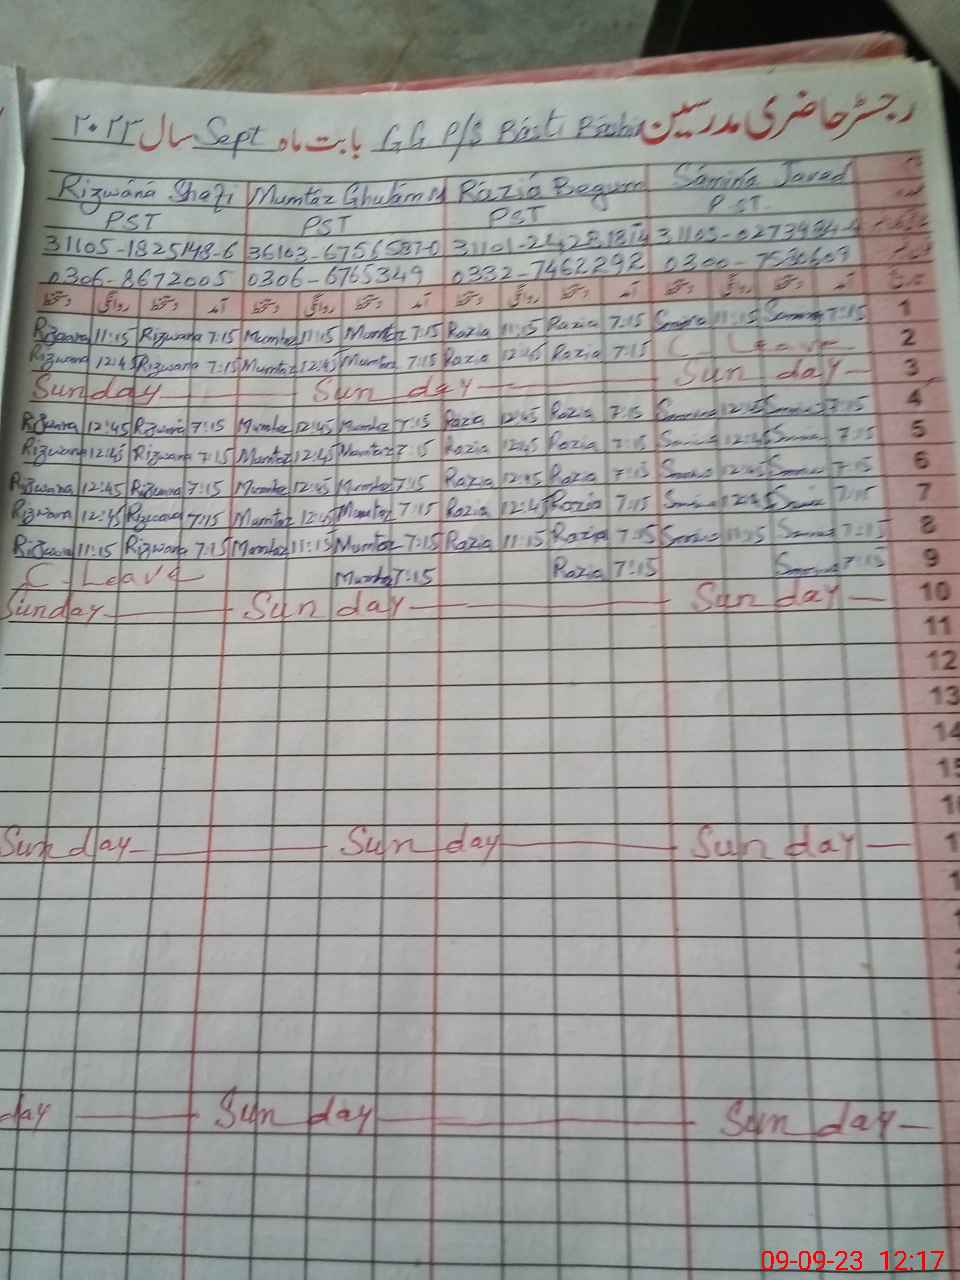 رجسٹر حاضری مدرسین GG P/S Basti بابت ماہ Sept سال ۲۰۲۳
Rizwana Shafi Mumtaz Ghulam M Razia Begum Samina Javed
PST PST PST PST
31105-1825148-6 36103-6756587-0 31101-2428181-4
0306-8672005 0306-6765349 0332-7462292 0300-7530609
دستخط روانگی دستخط آمد دستخط روانگی دستخط آمد دستخط روانگی دستخط آمد دستخط روانگی دستخط آمد تاریخ
Rizwana 11:15 Rizwana 7:15 Mumtaz 11:15 Mumtaz 7:15 Razia 11:15 Razia 7:15 Samina 11:15 Samina 7:15 1
Rizwana 12:45 Rizwana 7:15 Mumtaz 12:45 Mumtaz 7:15 Razia 12:45 Razia 7:15 C Leave 2
Sunday Sunday Sunday 3
Rizwana 12:45 Rizwana 7:15 Mumtaz 12:45 Mumtaz 7:15 Razia 12:45 Razia 7:15 Samina 12:45 Samina 7:15 4
Rizwana 12:45 Rizwana 7:15 Mumtaz 12:45 Mumtaz 7:15 Razia 12:45 Razia 7:15 Samina 12:45 Samina 7:15 5
Rizwana 12:45 Rizwana 7:15 Mumtaz 12:45 Mumtaz 7:15 Razia 12:45 Razia 7:15 Samina 12:45 Samina 7:15 6
Rizwana 12:45 Rizwana 7:15 Mumtaz 12:45 Mumtaz 7:15 Razia 12:45 Razia 7:15 Samina 12:45 Samina 7:15 7
Rizwana 11:15 Rizwana 7:15 Mumtaz 11:15 Mumtaz 7:15 Razia 11:15 Razia 7:15 Samina 11:15 Samina 7:15 8
C-Leave Mumtaz 7:15 Razia 7:15 Samina 7:15 9
Sunday Sunday Sunday 10
11
12
13
14
15
1
Sunday Sunday Sunday 1
1
day Sunday Sunday
09-09-23 12:17